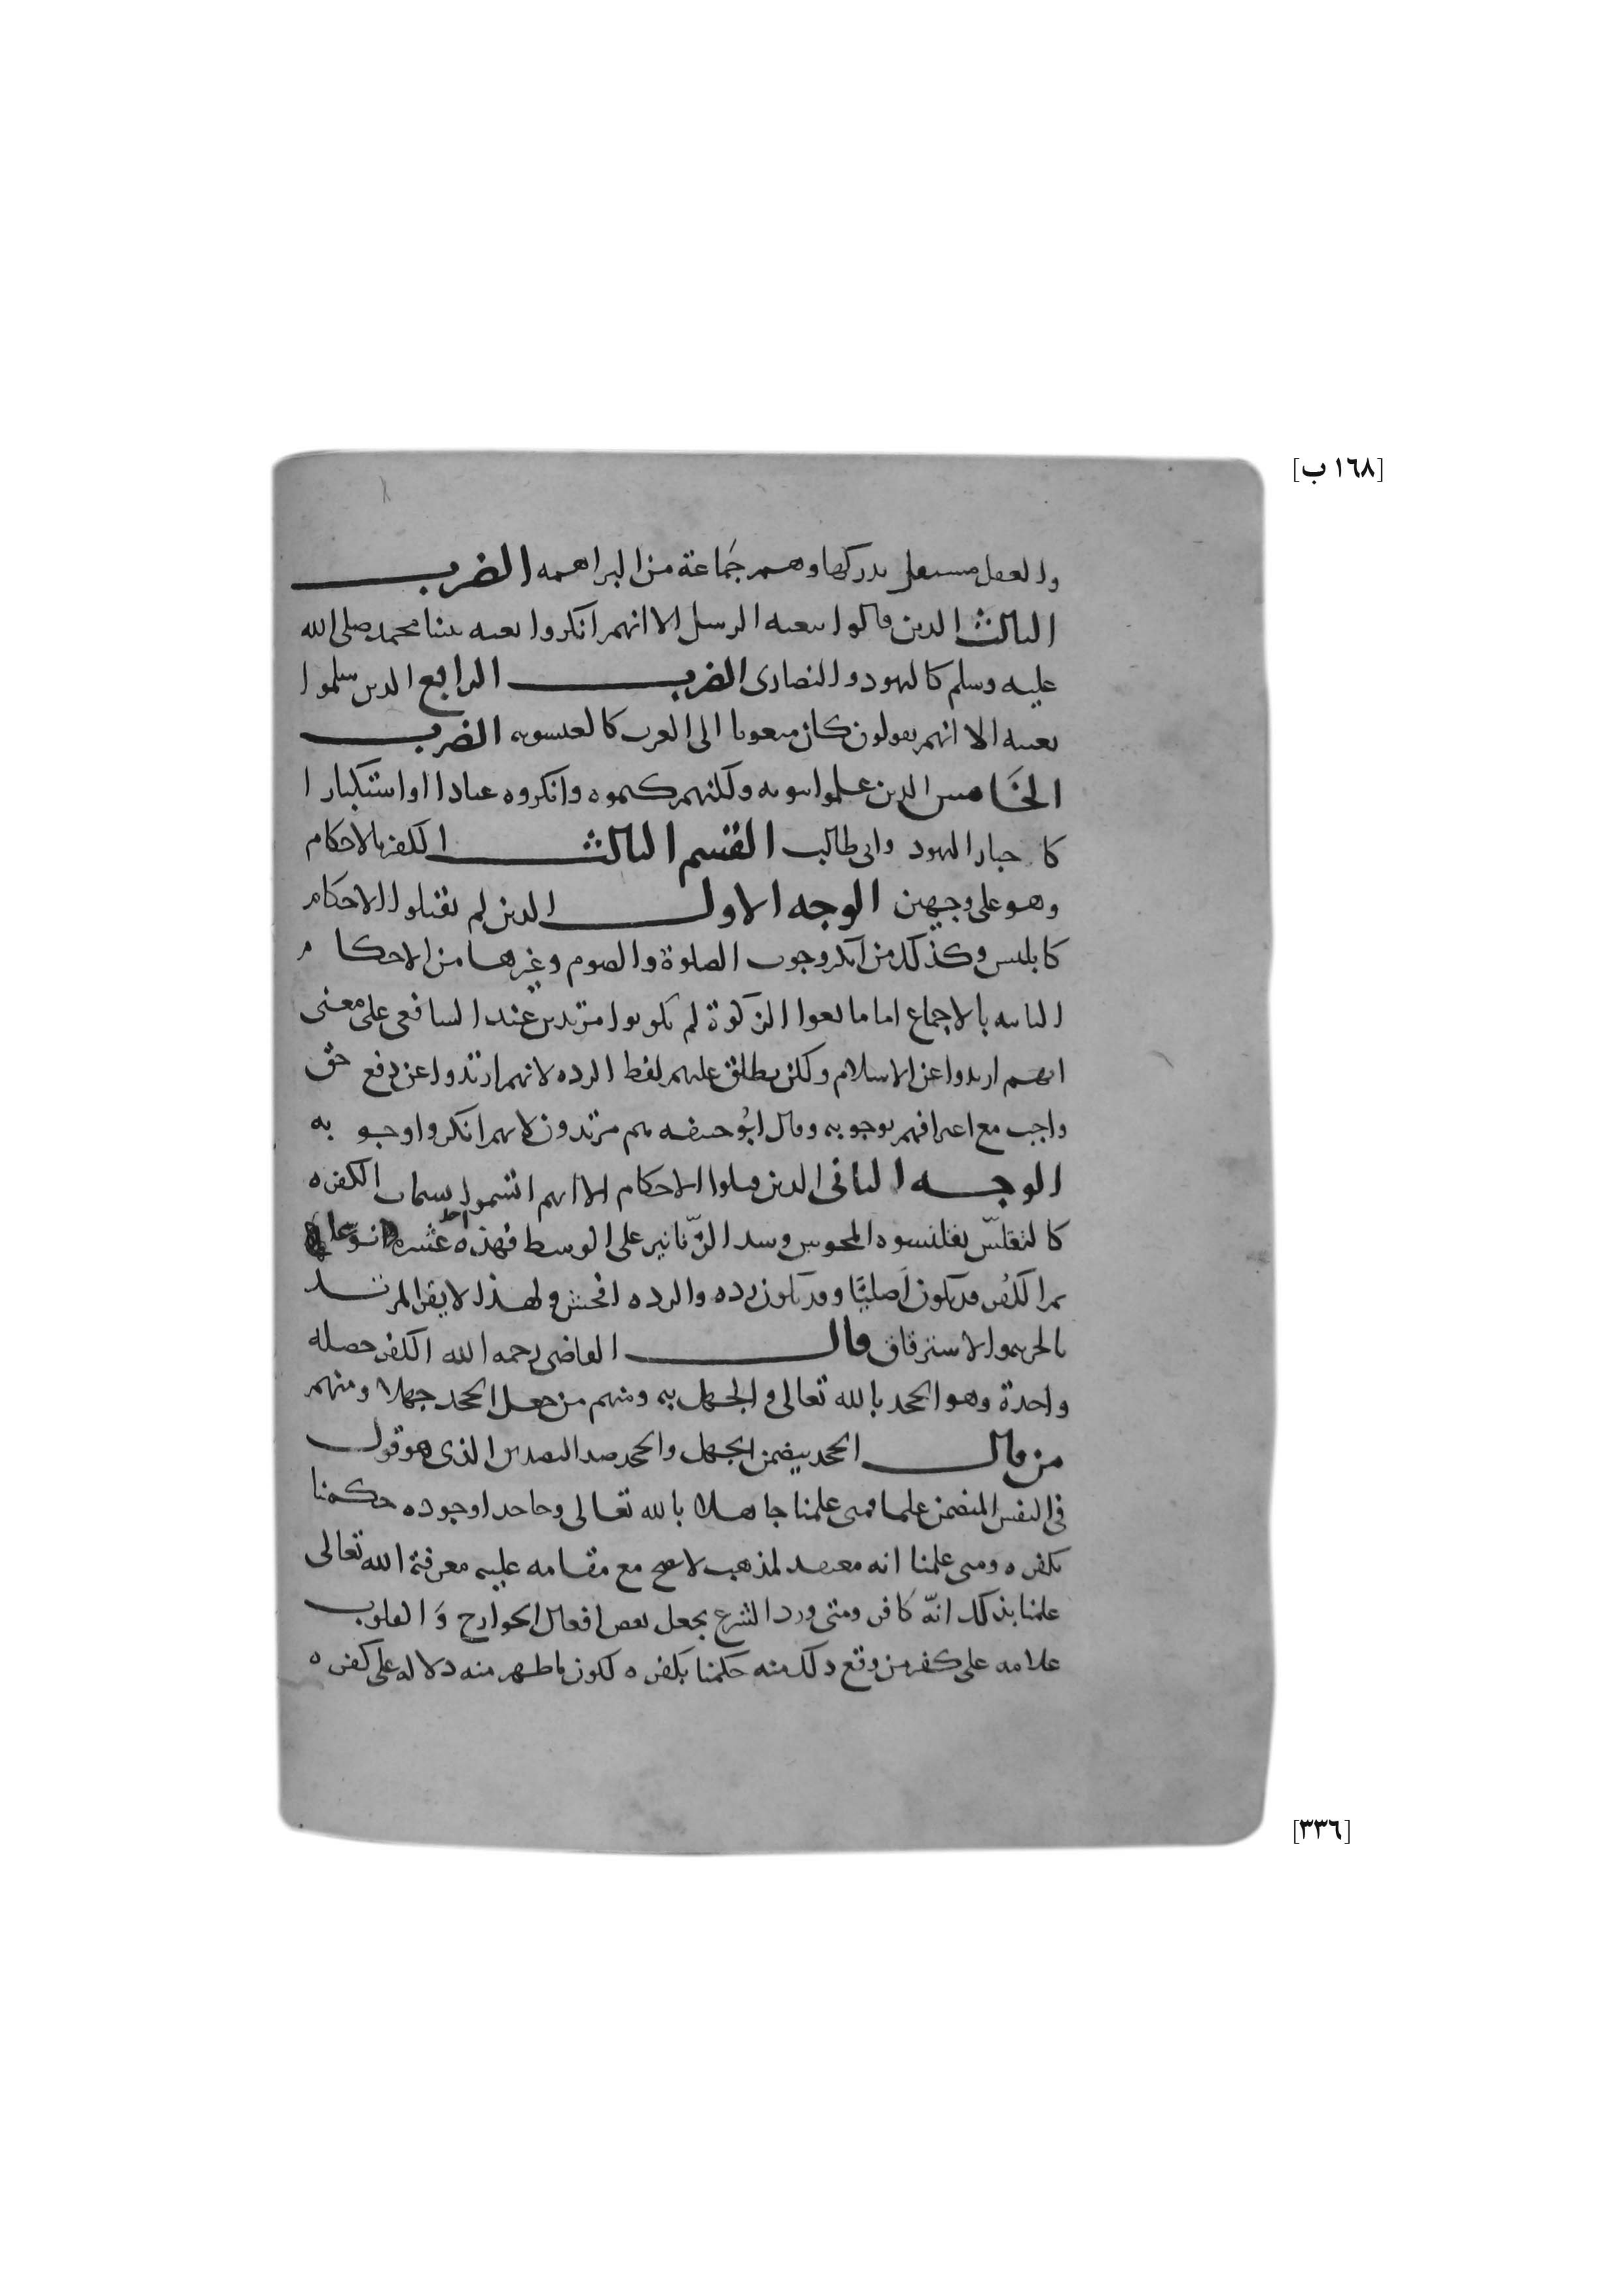 [١٦٨ ب]
والعقل مستقل بدركها وهم جَماعة من البراهمه الضرب
الثالث الذين قالوا ببعثه الرسل الا انهم انكروا بعثه نبينا محمد صلى الله
عليه وسلم كاليهود والنصارى الضرب الرابع الذين سلموا
بعثته الا انهم يقولون كان مبعوثا الى العرب كالعيسويه الضرب
الخَامس الذين علموا نبوته ولكنهم كتموه وانكروه عنادا او استكبارا
كاحبار اليهود وابى طالب القسم الثالث الكفر بالاحكام
وهو على وجهين الوجه الاول الذين لم يقبلوا الاحكام
كابليس وكذلك من انكر وجوب الصلوة والصوم وغيرها من الاحكام
الثابته بالاجماع اما مانعوا الزكوة لم يكونوا مرتدين عند الشافعى على معنى
انهم ارتدوا عن الاسلام ولكن يطلق عليهم لفظ الرده لانهم ارتدوا عن دفع حق
واجب مع اعترافهم بوجوبه وقال ابُو حنيفه هم مرتدون لانهم انكروا وجوبه
الوجه الثانى الذين قبلوا الاحكام الا انهم اتسموا بسمات الكفره
كالتقلّس بقلنسوه المجوس وشد الزّنانير على الوسط فهذه احد عشره نوعا
ثم الكُفر قد يكون اَصليًّا وقد يكون رده والرده افحش ولهذا لا يقر المرتد
بالجزيه والاسترقاق قال القاضى رحمه الله الكفر خصله
واحدة وهو الجحد بالله تعالى والجهل به ومنهم من جعل الجحد جهلا ومنهم
من قال الجحد يتضمن الجهل والجحد ضد التصديق الذى هو قول
فى النفس المتضمن علما فمتى علمنا جاهلا بالله تعالى وجاحدا وجوده حكمنا
بكفره ومتى علمنا انه معتقد لمذهب لا يصح مع مقامه عليه معرفة الله تعالى
علمنا بذلك انّه كافر ومتى ورد الشرع بجعل بعض افعال الجوارح وَالقلوب
علامه على كفر من وقع ذلك منه حكمنا بكفره لكون ما ظهر منه دلاله على كفره
[٣٣٦]